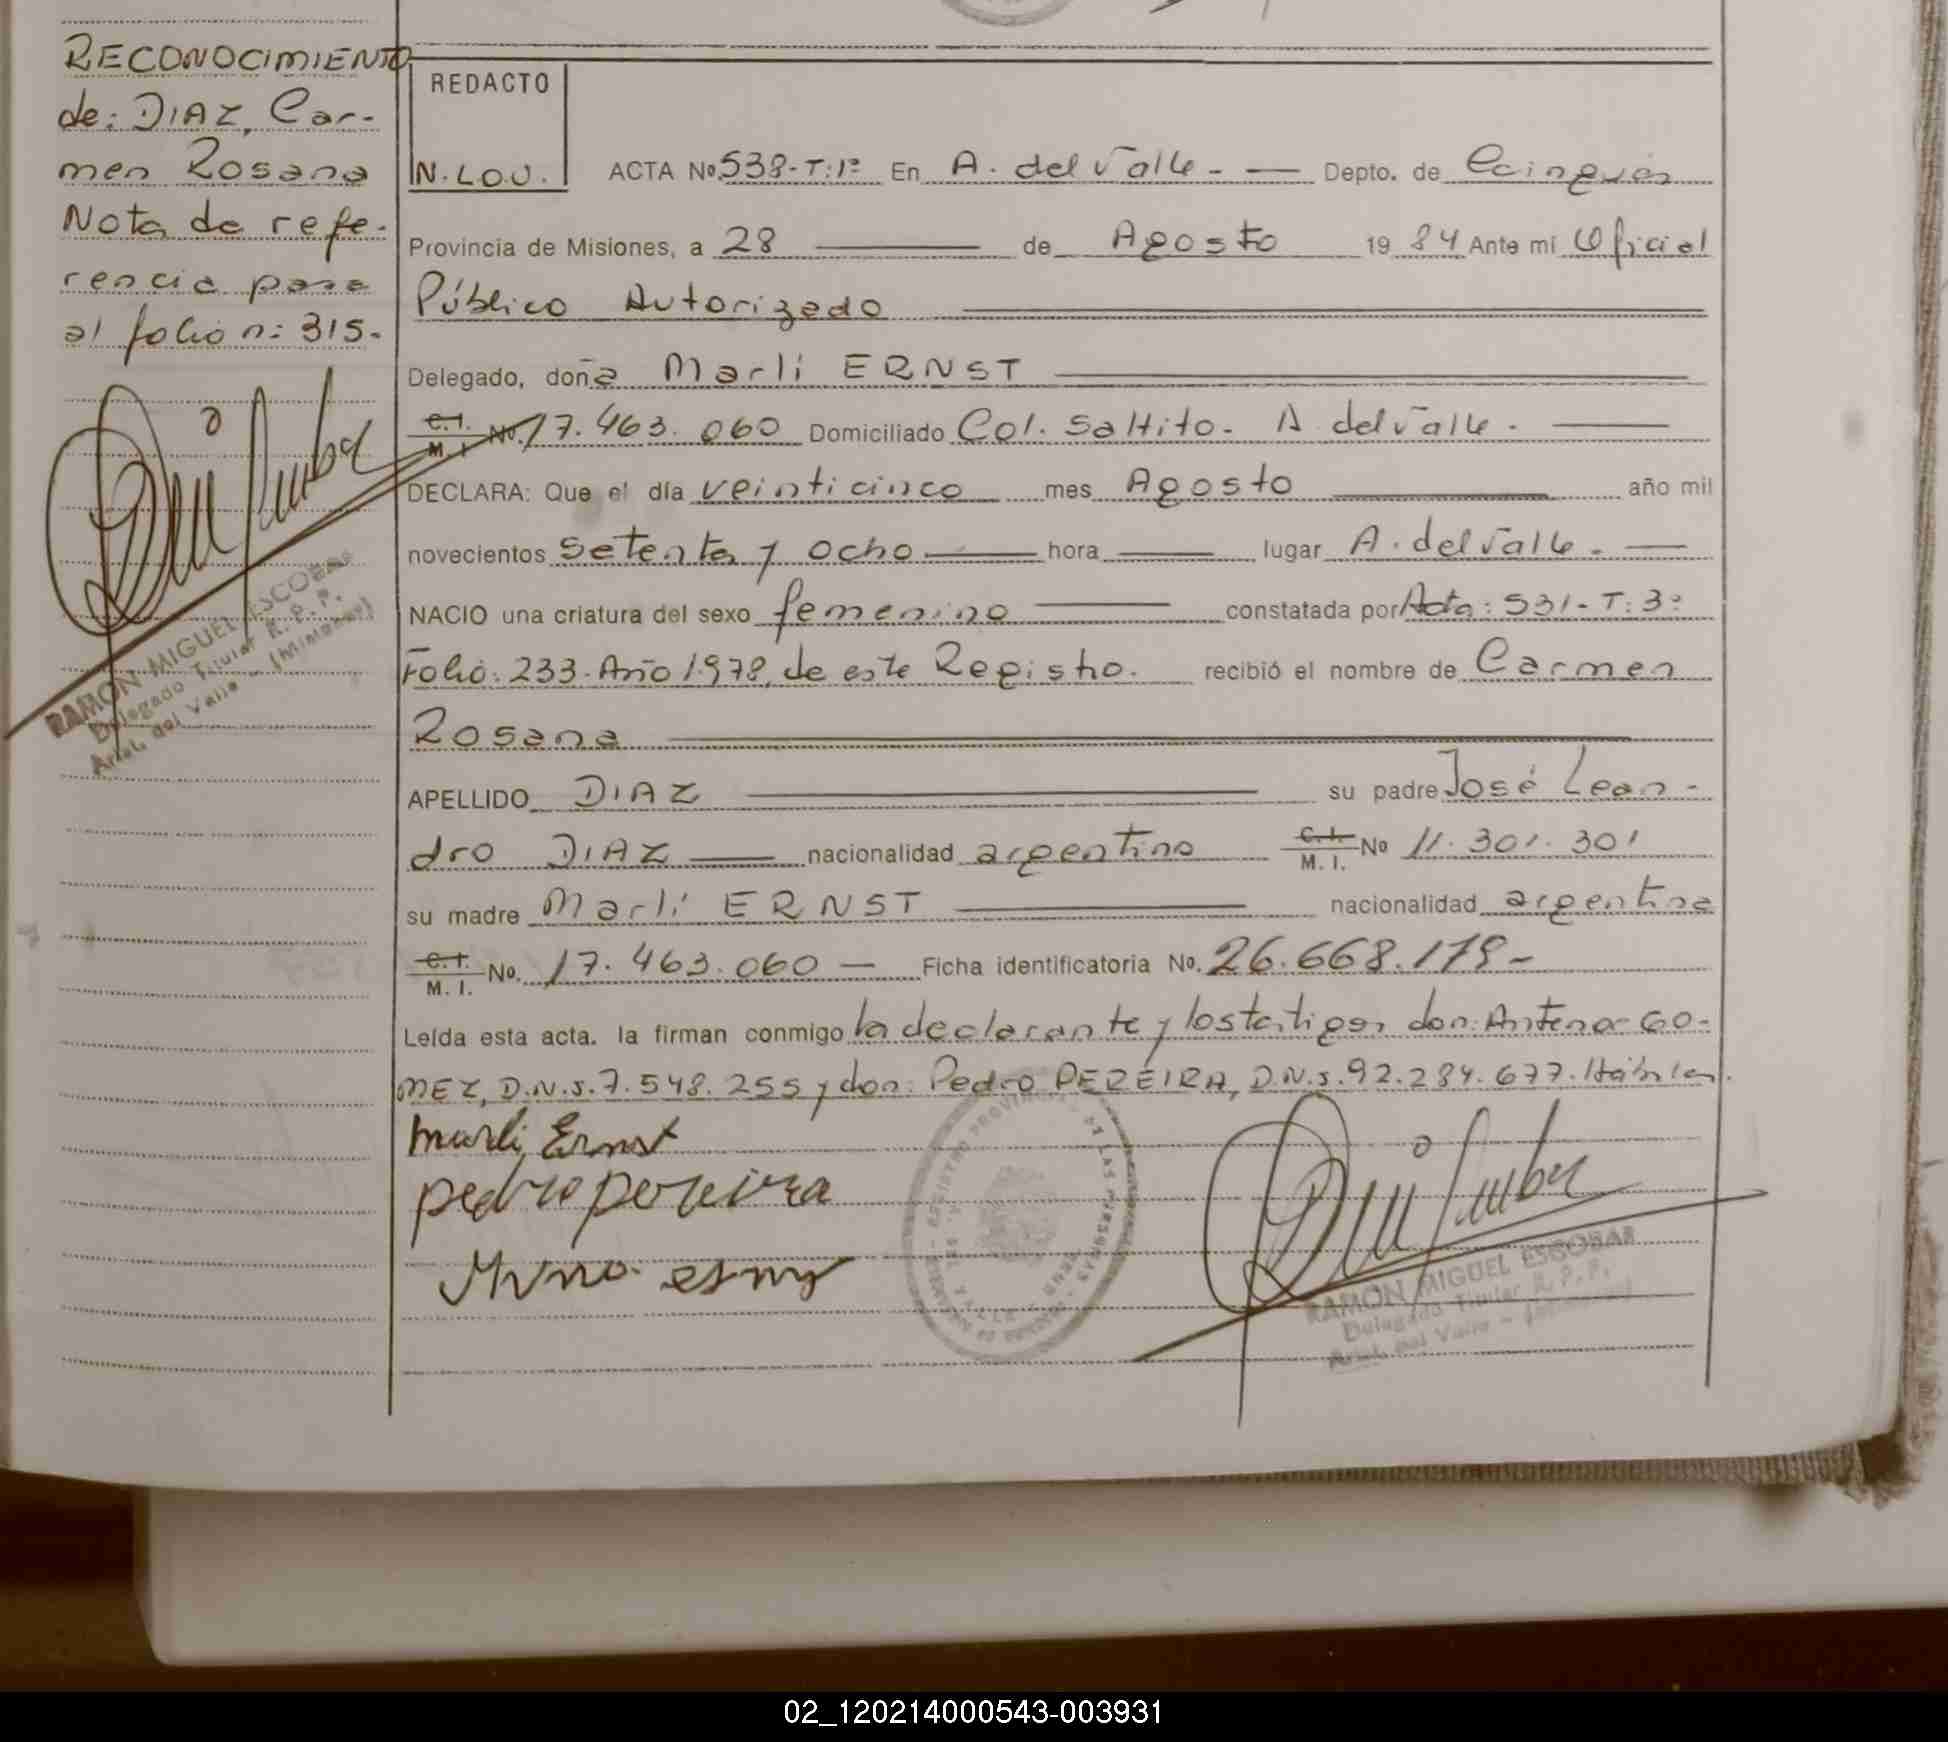 RECONOCIMIENTO
de: DIAZ, Car-
men Rosana
Nota de refe-
rencia pasa
al folio n: 315.
RAMON MIGUEL ESCOBAR
Delegado Titular R. P. P.
Arist. del Valle - (Misiones)
REDACTO
N. LOU.
ACTA No 538-T:1º En A. del Valle - Depto. de Cainguás
Provincia de Misiones, a 28 de Agosto 19 84 Ante mí Oficial
Público Autorizado
Delegado, doña Marli ERNST
C.I. M. I. No. 17.463.060 Domiciliado Col. Saltito. A. del Valle.
DECLARA: Que el día veinticinco mes Agosto año mil
novecientos setenta y ocho hora lugar A. del Valle.
NACIO una criatura del sexo femenino constatada por Acta: 531-T:3º
Folio: 233. Año 1.978, de este Registro. recibió el nombre de Carmen
Rosana
APELLIDO DIAZ su padre José Lean-
dro DIAZ nacionalidad argentino C.I. M. I. No 11.301.301
su madre Marli ERNST nacionalidad argentina
C.I. M. I. No. 17.463.060 Ficha identificatoria No. 26.668.179-
Leída esta acta. la firman conmigo la declarante y los testigos, don: Antenor GO-
MEZ, D.N.I. 7.548.255 y don: Pedro PEREIRA, D.N.I. 92.284.677. Hábiles.
Marli Ernst
pedro pereira
RAMON MIGUEL ESCOBAR
Delegado Titular R. P. P.
Arist. del Valle - (Misiones)
02_120214000543-003931